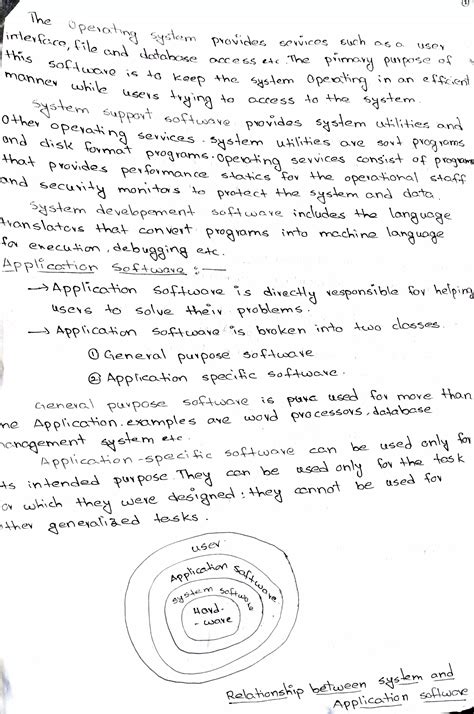 The Operating system provides services such as a user
interface, file and database access etc. The primary purpose of
this software is to keep the system Operating in an efficient
manner while users trying to access to the system.
System support software provides system utilities and
Other operating services. System utilities are sort programs
and disk format programs. Operating services consist of program
that provides performance statics for the operational staff
and security monitors to protect the system and data.
System developement software includes the language
translators that convert programs into machine language
for execution, debugging etc.
Application Software :-
→ Application software is directly responsible for helping
users to solve their problems.
→ Application software is broken into two classes.
① General purpose software
② Application specific software.
General purpose software is used for more than
ne Application. examples are word processors, database
management system etc.
Application-specific software can be used only for
ts intended purpose. They can be used only for the task
or which they were designed; they cannot be used for
ther generalized tasks.
user
Application Software
System Software
Hard-
-ware
Relationship between system and
Application software